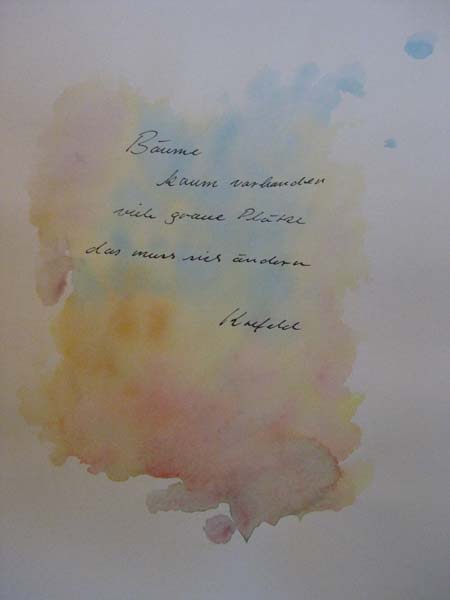 Bäume
kaum vorhanden
viele graue Plätze
das muss sich ändern
Krefeld